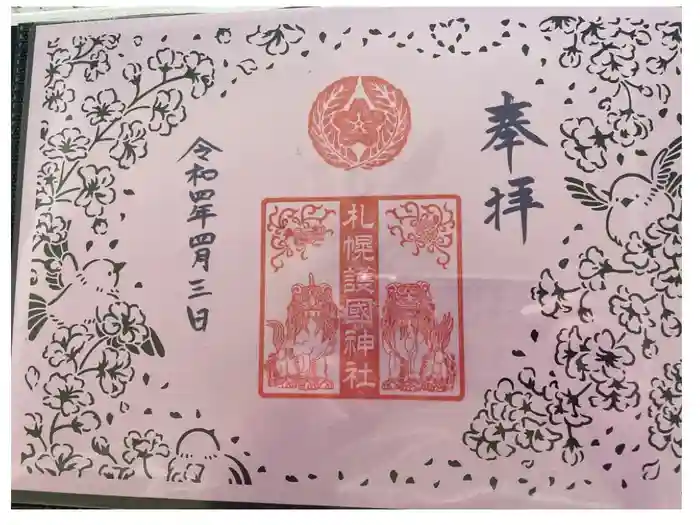 奉拝
札幌護國神社
令和四年四月三日